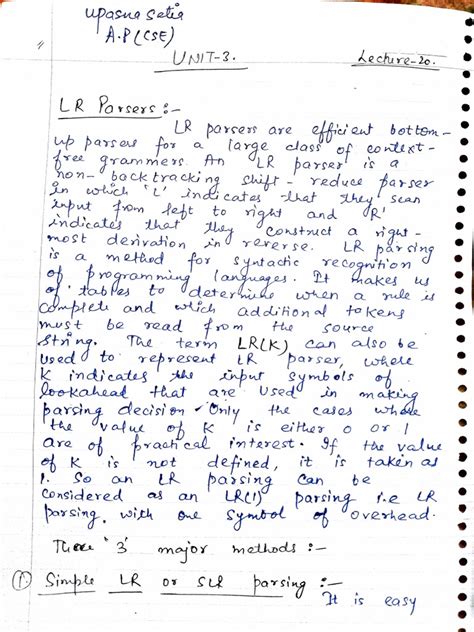 Upasna Setia
A.P (CSE)
UNIT-3.
Lecture-20.
LR Parsers :-
LR parsers are efficient bottom-
up parsers for a large class of context-
free grammers. An LR parser is a
non-backtracking shift-reduce parser
in which 'L' indicates that they scan
input from left to right and 'R'
indicates that they construct a right-
most derivation in reverse. LR parsing
is a method for syntactic recognition
of programming languages. It makes us
of tables to determine when a rule is
complete and which additional tokens
must be read from the source
string. The term LR(K) can also be
used to represent LR parser, where
K indicates the input symbols of
lookahead that are used in making
parsing decision. Only the cases where
the value of K is either 0 or 1
are of practical interest. If the value
of K is not defined, it is taken as
1. So an LR parsing can be
considered as an LR(1) parsing i.e LR
parsing with one symbol of overhead.
'3' major methods :-
① Simple LR or SLR parsing :-
It is easy